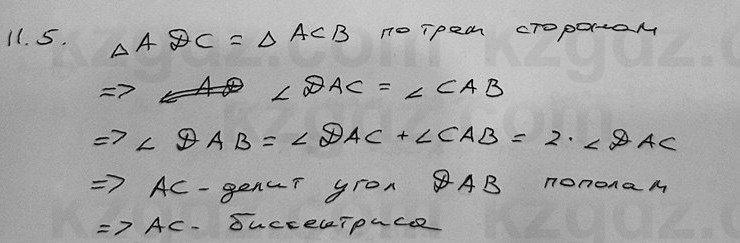 11.5. △ADC = △ACB по трем сторонам
=> ∠DAC = ∠CAB
=> ∠DAB = ∠DAC + ∠CAB = 2·∠DAC
=> AC - делит угол DAB пополам
=> AC - биссектриса